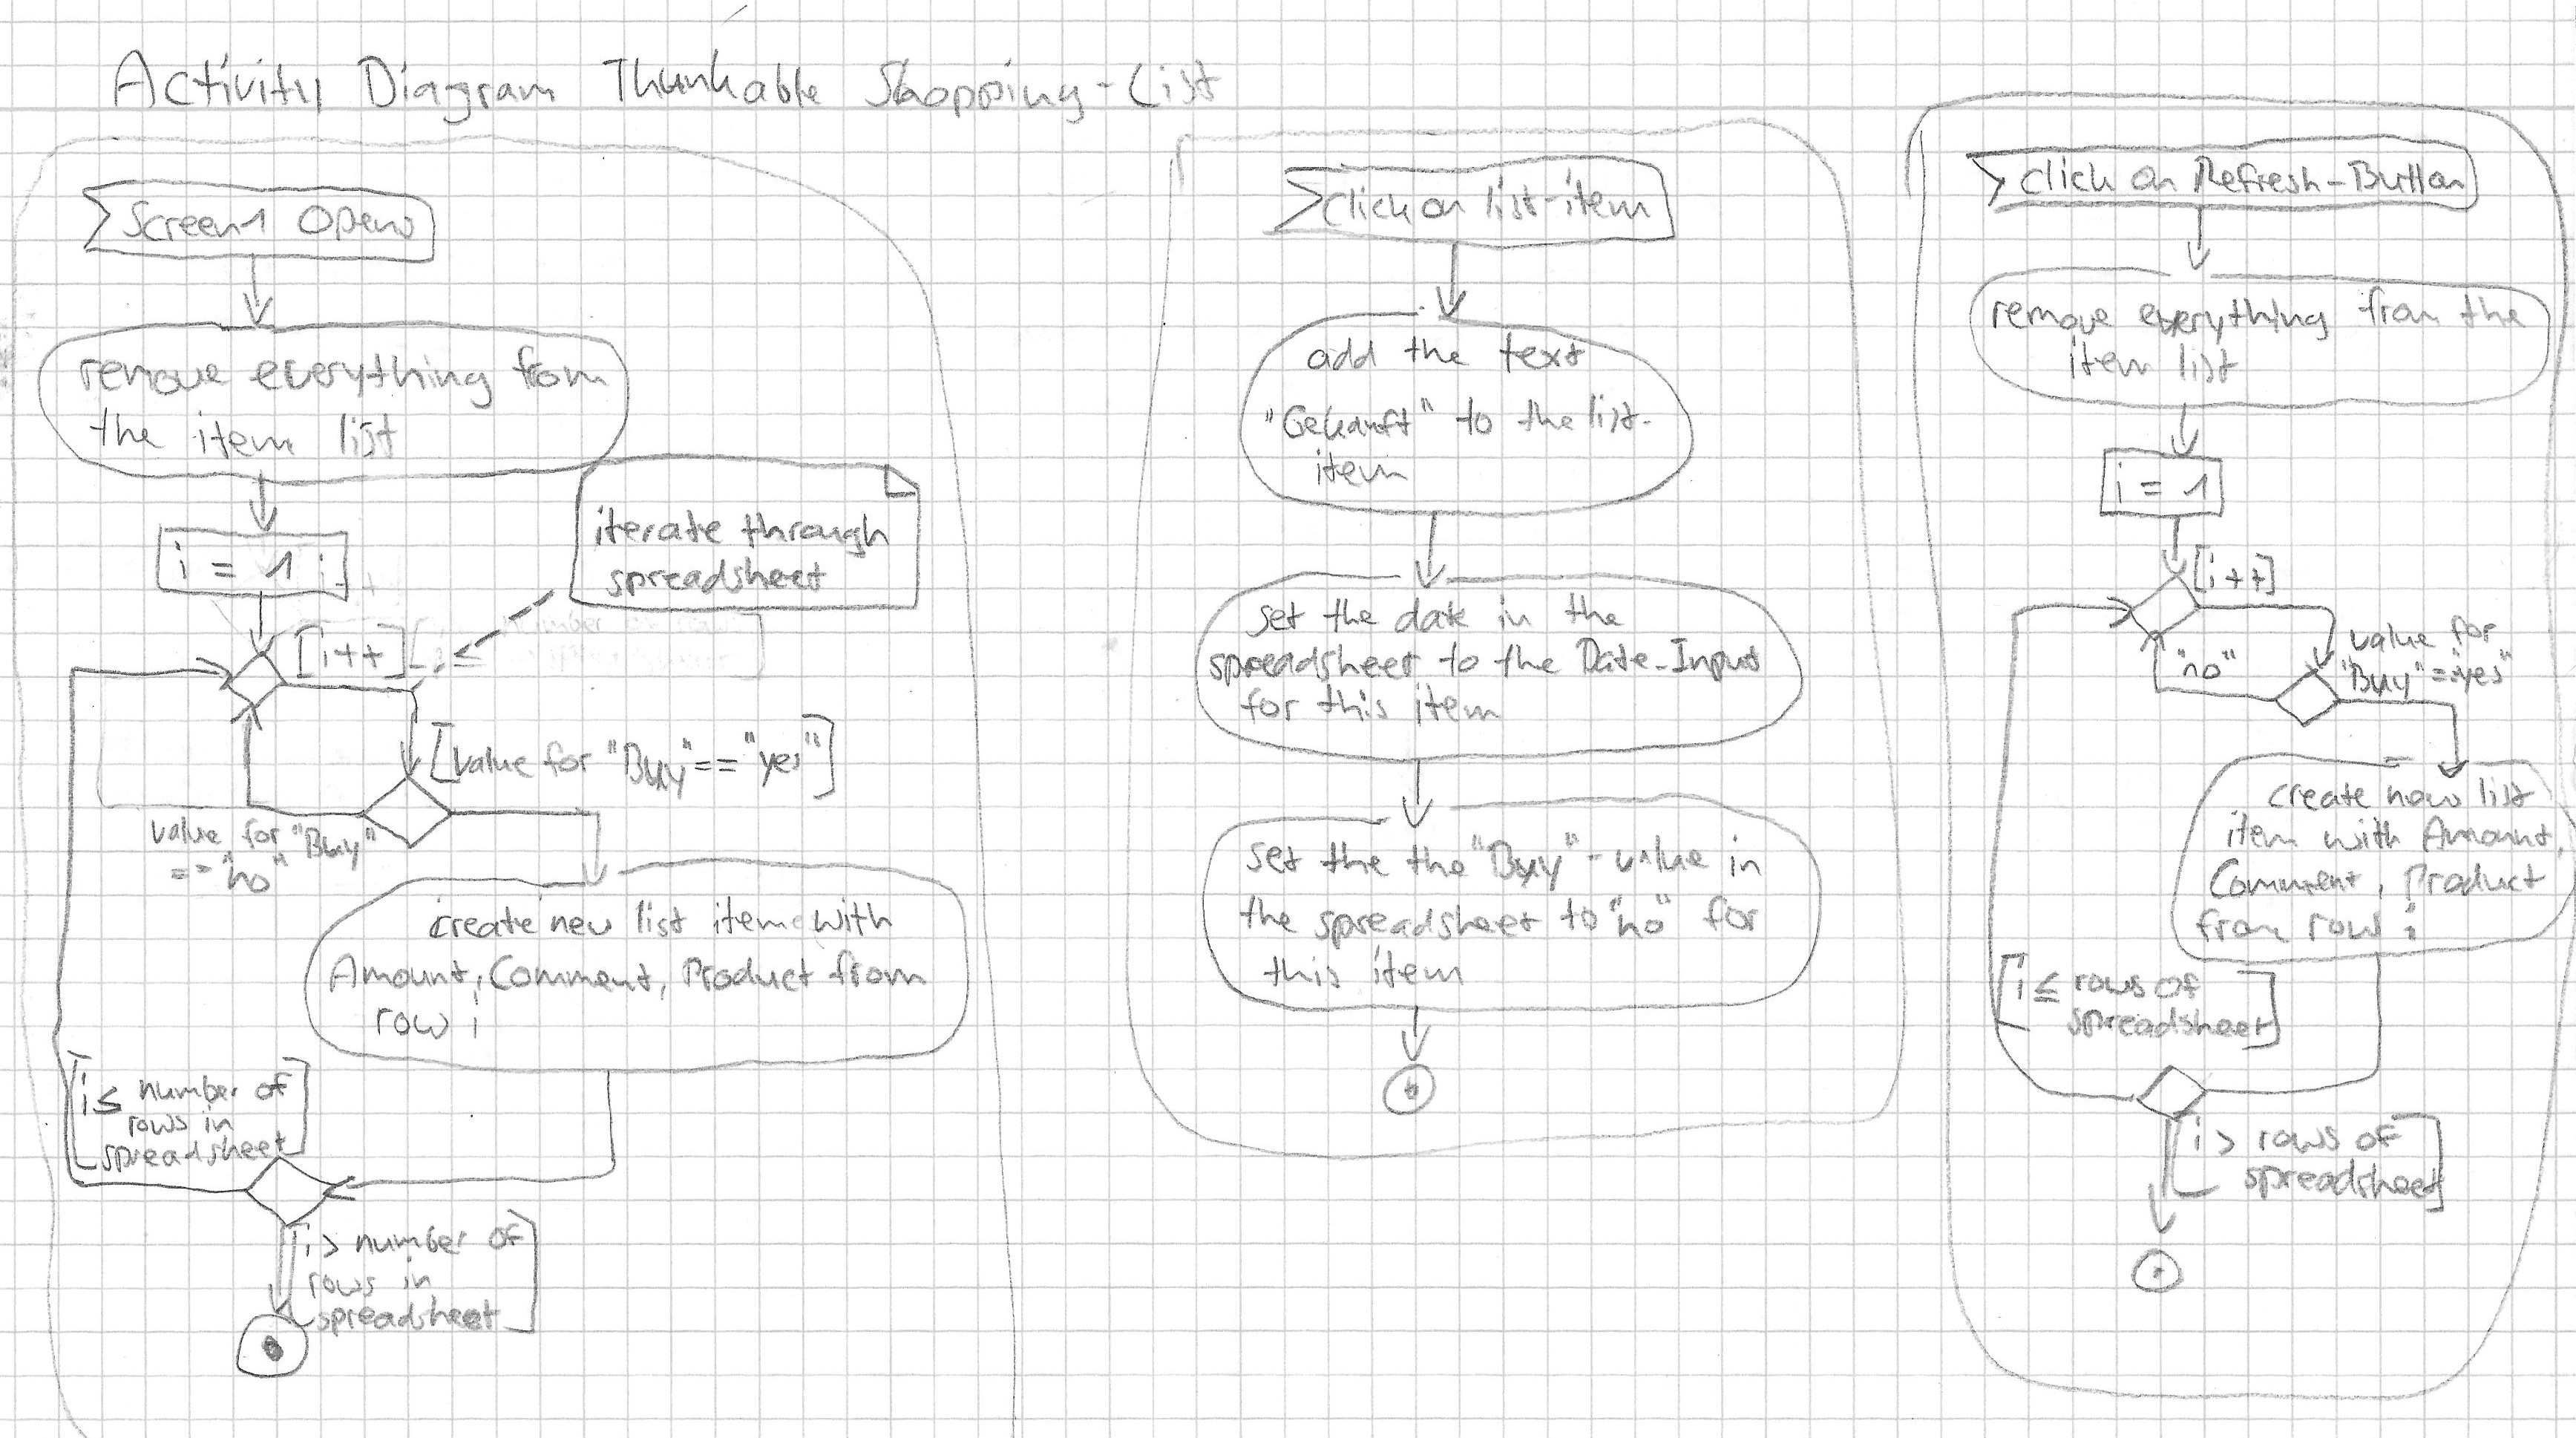 Activity Diagram Thunkable Shopping-List
Screen1 Opens
remove everything from
the item list
i = 1
iterate through
spreadsheet
[i++]
[value for "Buy" == "yes"]
value for "Buy"
== "no"
create new list item with
Amount, Comment, Product from
row i
[i ≤ number of
rows in
spreadsheet]
[i > number of
rows in
spreadsheet]
Click on list-item
add the text
"Gekauft" to the list-
item
set the date in the
spreadsheet to the Date-Input
for this item
set the the "Buy"-value in
the spreadsheet to "no" for
this item
click on Refresh-Button
remove everything from the
item list
i = 1
[i++]
value for
"Buy"=="yes"
"no"
create new list
item with Amount,
Comment, Product
from row i
[i ≤ rows of
spreadsheet]
[i > rows of
spreadsheet]